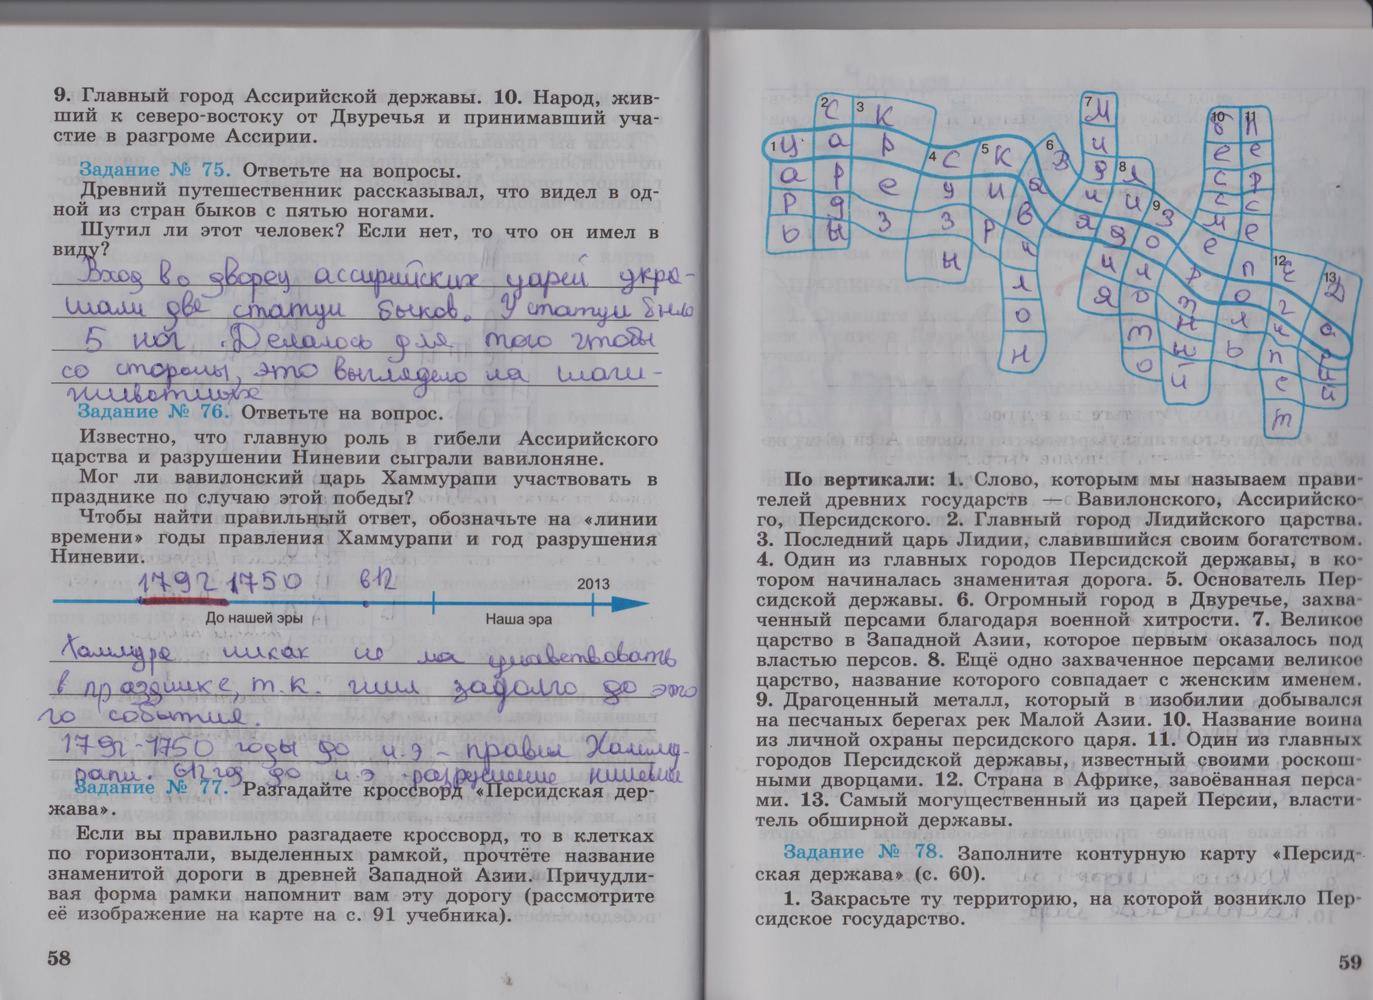 9. Главный город Ассирийской державы. 10. Народ, жив-
ший к северо-востоку от Двуречья и принимавший уча-
стие в разгроме Ассирии.
Задание № 75. Ответьте на вопросы.
Древний путешественник рассказывал, что видел в од-
ной из стран быков с пятью ногами.
Шутил ли этот человек? Если нет, то что он имел в
виду?
Вход во дворец ассирийских царей укра-
шали две статуи быков. У статуи было
5 ног. Делалось для того чтобы
со стороны, это выглядело ла шаги-
Задание № 76. Ответьте на вопрос.
Известно, что главную роль в гибели Ассирийского
царства и разрушении Ниневии сыграли вавилоняне.
Мог ли вавилонский царь Хаммурапи участвовать в
празднике по случаю этой победы?
Чтобы найти правильный ответ, обозначьте на «линии
времени» годы правления Хаммурапи и год разрушения
Ниневии.
1792 1750 612
2013
До нашей эры Наша эра
никак не
в празднике, т.к. жил задолго до это
го события.
1792-1750 годы до н.э - правил Хамму-
рапи. 612 год до н.э разрушение ниневии
Задание № 77. Разгадайте кроссворд «Персидская дер-
жава».
Если вы правильно разгадаете кроссворд, то в клетках
по горизонтали, выделенных рамкой, прочтёте название
знаменитой дороги в древней Западной Азии. Причудли-
вая форма рамки напомнит вам эту дорогу (рассмотрите
её изображение на карте на с. 91 учебника).
58
1 Ц а р ь
2 С а р д ы
3 К р е з
4 С у з ы
5 К и р
6 В а в и л о н
7 М и д и я
8
9 З о л о т о
10 б е с с м е р т н ы й
11 П е р с е п о л ь
12 Е г и п е т
13 Д а р и й
По вертикали: 1. Слово, которым мы называем прави-
телей древних государств — Вавилонского, Ассирийско-
го, Персидского. 2. Главный город Лидийского царства.
3. Последний царь Лидии, славившийся своим богатством.
4. Один из главных городов Персидской державы, в ко-
тором начиналась знаменитая дорога. 5. Основатель Пер-
сидской державы. 6. Огромный город в Двуречье, захва-
ченный персами благодаря военной хитрости. 7. Великое
царство в Западной Азии, которое первым оказалось под
властью персов. 8. Ещё одно захваченное персами великое
царство, название которого совпадает с женским именем.
9. Драгоценный металл, который в изобилии добывался
на песчаных берегах рек Малой Азии. 10. Название воина
из личной охраны персидского царя. 11. Один из главных
городов Персидской державы, известный своими роскош-
ными дворцами. 12. Страна в Африке, завоёванная перса-
ми. 13. Самый могущественный из царей Персии, власти-
тель обширной державы.
Задание № 78. Заполните контурную карту «Персид-
ская держава» (с. 60).
1. Закрасьте ту территорию, на которой возникло Пер-
сидское государство.
59